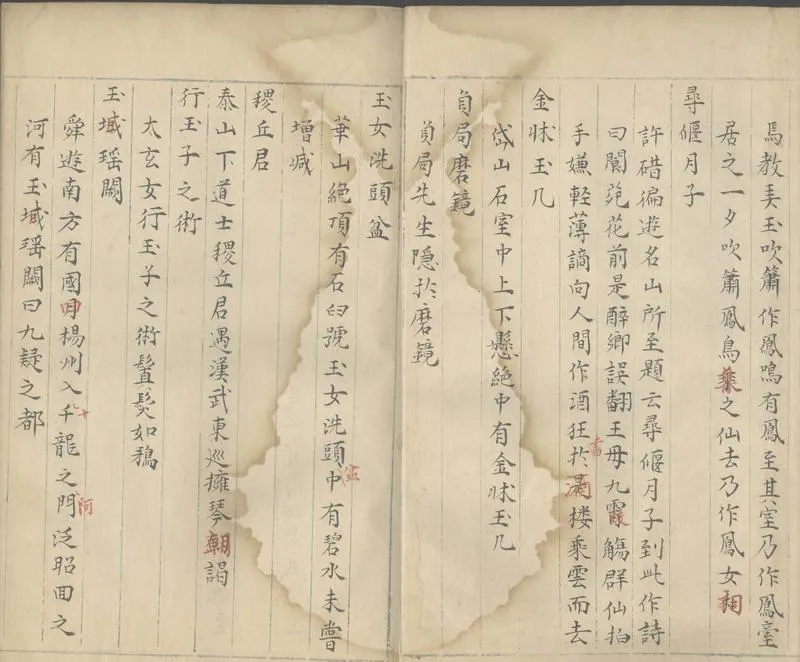 焉教弄玉吹簫作鳳鳴有鳳至其室乃作鳳臺
居之一夕吹簫鳳鳥乘之仙去乃作鳳女相
尋偃月子
許碏徧遊名山所至題云尋偃月子到此作詩
曰閬苑花前是醉鄉誤翻王母九霞觴群仙拍
手嫌輕薄謫向人間作酒狂於書滿楼乘雲而去
金牀玉几
岱山石室中上下懸絶中有金牀玉几
負局磨鏡
負局先生隠於磨鏡
玉女洗頭盆
華山絶頂有石臼號玉女洗頭盆中有碧水未嘗
增减
稷丘君
泰山下道士稷丘君遇漢武東巡擁琴朝謁
行玉子之術
太玄女行玉子之術鬒髮如鴉
玉城瑶闕
舜遊南方有國曰楊州入千十龍之門阿泛昭回之
河有玉城瑶闕曰九疑之都